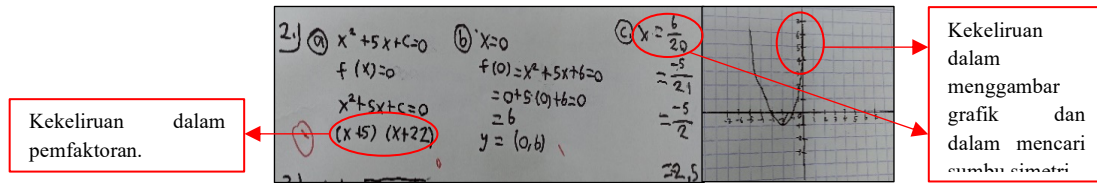 Kekeliruan dalam
pemfaktoran.
2.) a x² + 5x + c = 0
f (x) = 0
x² + 5x + c = 0
(x + 5) (x + 22)
b x = 0
f(0) = x² + 5x + 6 = 0
= 0 + 5 (0) + 6 = 0
= 6
y = (0,6)
c x = 6/20
= -5/21
= -5/2
= 2,5
Kekeliruan
dalam
menggambar
grafik dan
dalam mencari
sumbu simetri